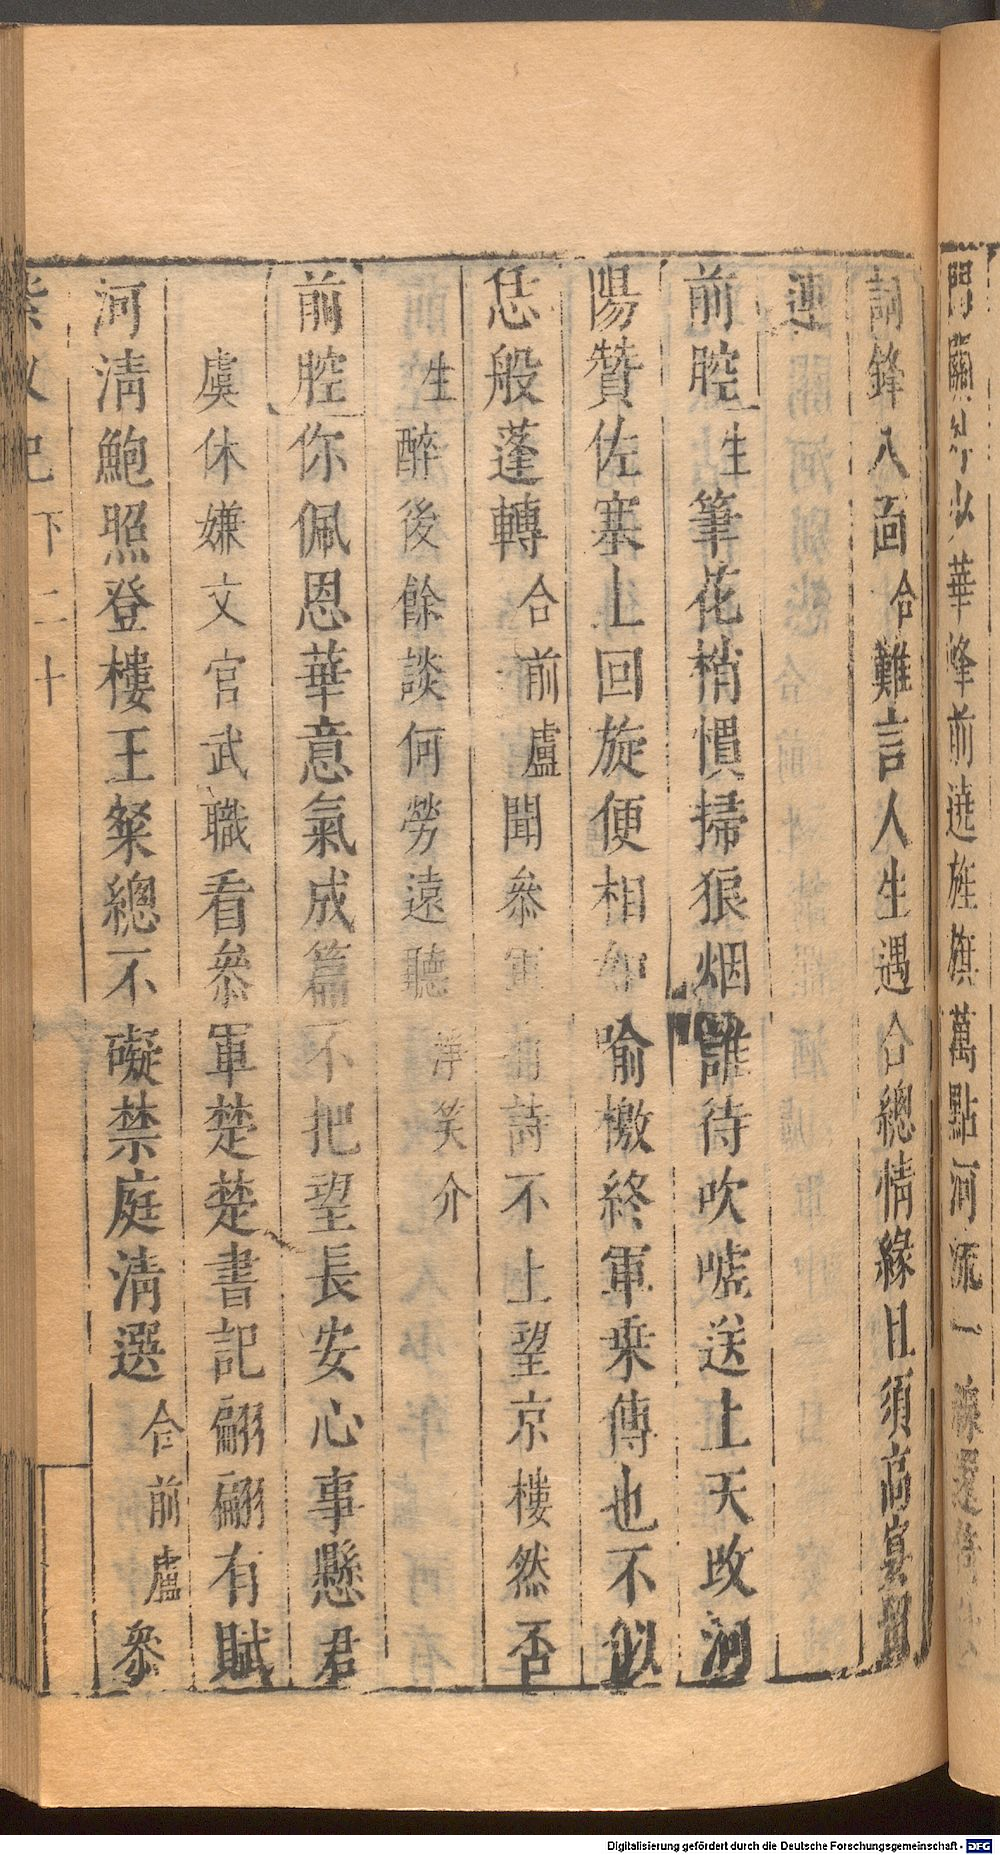 門關紗少華峰前遶旌旗萬點河流一
詩鋒入面合難言人生遇合總情緣且須高宴
前腔生筆花梢慣掃狼烟誰待吹噓送上天政河
陽贊佐塞上回旋便相如喻檄終軍乘傳也不似
恁般蓬轉合前盧聞參軍詩不上望京樓然否
生醉後餘談何勞遠聽淨笑介
前腔你佩恩華意氣成篇不把望長安心事懸君
虞休嫌文官武職看參軍楚楚書記翩翩有賦
河清鮑照登樓王粲總不礙禁庭清選合前盧參
紫釵記下二十
Digitalisierung gefördert durch die Deutsche Forschungsgemeinschaft - DFG